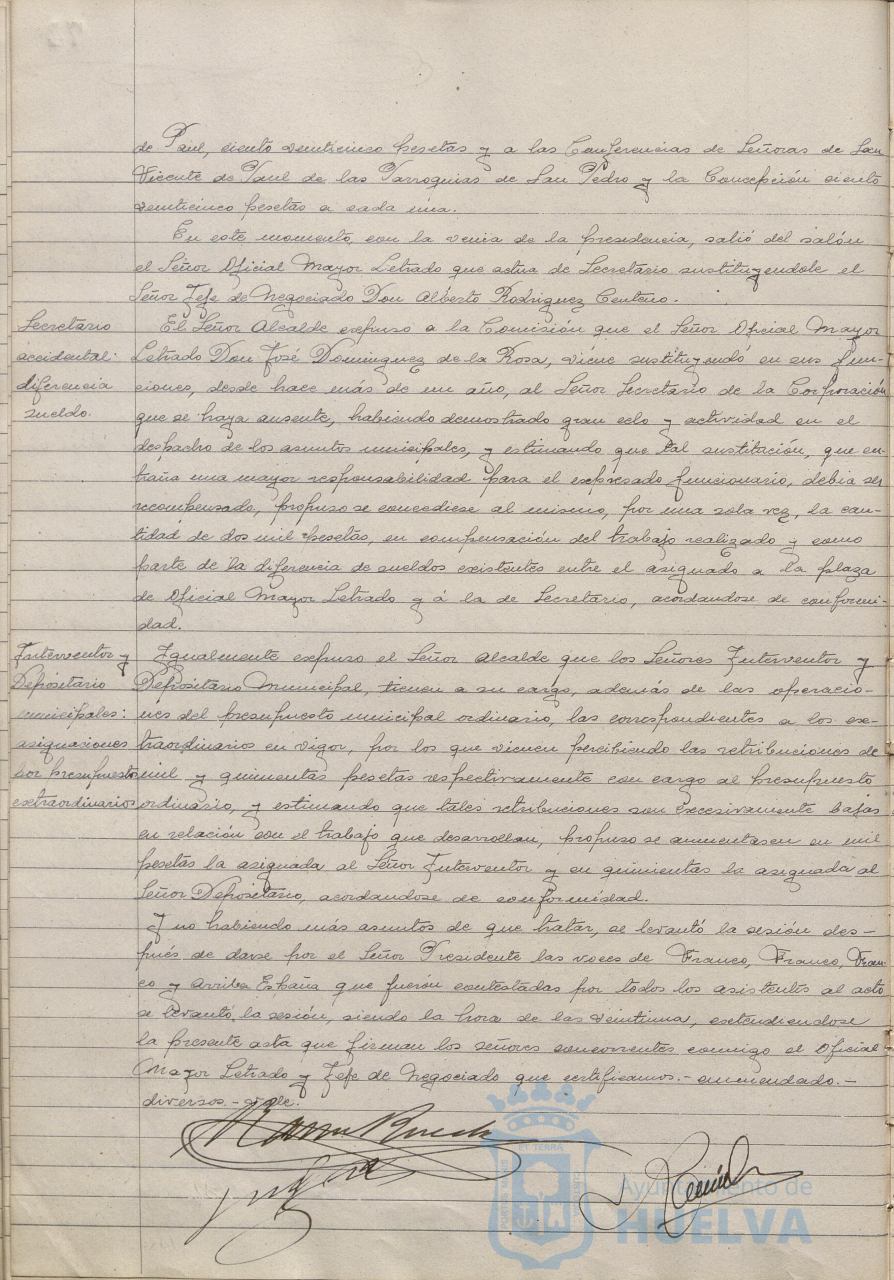 de Paul, ciento veinticinco pesetas y a las Conferencias de Señoras de San
Vicente de Paul de las Parroquias de San Pedro y la Concepción ciento
veinticinco pesetas a cada una.
En este momento, con la venia de la presidencia, salió del salón
el Señor Oficial Mayor Letrado que actua de Secretario sustituyendole el
Señor Jefe de Negociado Don Alberto Rodriguez Centeno.
Secretario
accidental:
diferencia
sueldo.
El Señor Alcalde expuso a la Comisión que el Señor Oficial Mayor
Letrado Don José Dominguez de la Rosa, viene sustituyendó en sus fun-
ciones, desde hace más de un año, al Señor Secretario de la Corporación
que se haya ausente, habiendo demostrado gran celo y actividad en el
despacho de los asuntos municipales, y estimando que tal sustitución, que en-
traña una mayor responsabilidad para el expresado funcionario, debia ser
recompensado, propuso se concediese al mismo, por una sola vez, la can-
tidad de dos mil pesetas, en compensación del trabajo realizado y como
parte de la diferencia de sueldos existentes entre el asignado a la plaza
de Oficial Mayor Letrado y á la de Secretario, acordandose de conformi-
dad.
Interventor y
Depositario
municipales:
asignaciones
por presupuestos
extraordinarios
Igualmente expuso el Señor Alcalde que los Señores Interventor y
Depositario Municipal, tienen a su cargo, además de las operacio-
nes del presupuesto municipal ordinario, las correspondientes a los ex-
traordinarios en vigor, por los que vienen percibiendo las retribuciones de
mil y quinientas pesetas respectivamente con cargo al presupuesto
ordinario, y estimando que tales retribuciones son excesivamente bajas
en relación con el trabajo que desarrollan, propuso se aumentasen en mil
pesetas la asignada al Señor Interventor y en quinientas la asignada al
Señor Depositario, acordandose de conformidad.
Y no habiendo más asuntos de que tratar, se levantó la sesión des-
pués de darse por el Señor Presidente las voces de Franco, Franco, Fran-
co y Arriba España que fueron contestadas por todos los asistentes al acto
se levantó la sesión, siendo la hora de las veintiuna, extendiendose
la presente acta que firman los señores concurrentes conmigo el Oficial
Mayor Letrado y Jefe de Negociado que certificamos.- enmendado.-
diversos.- vale.
Ayuntamiento de
HUELVA